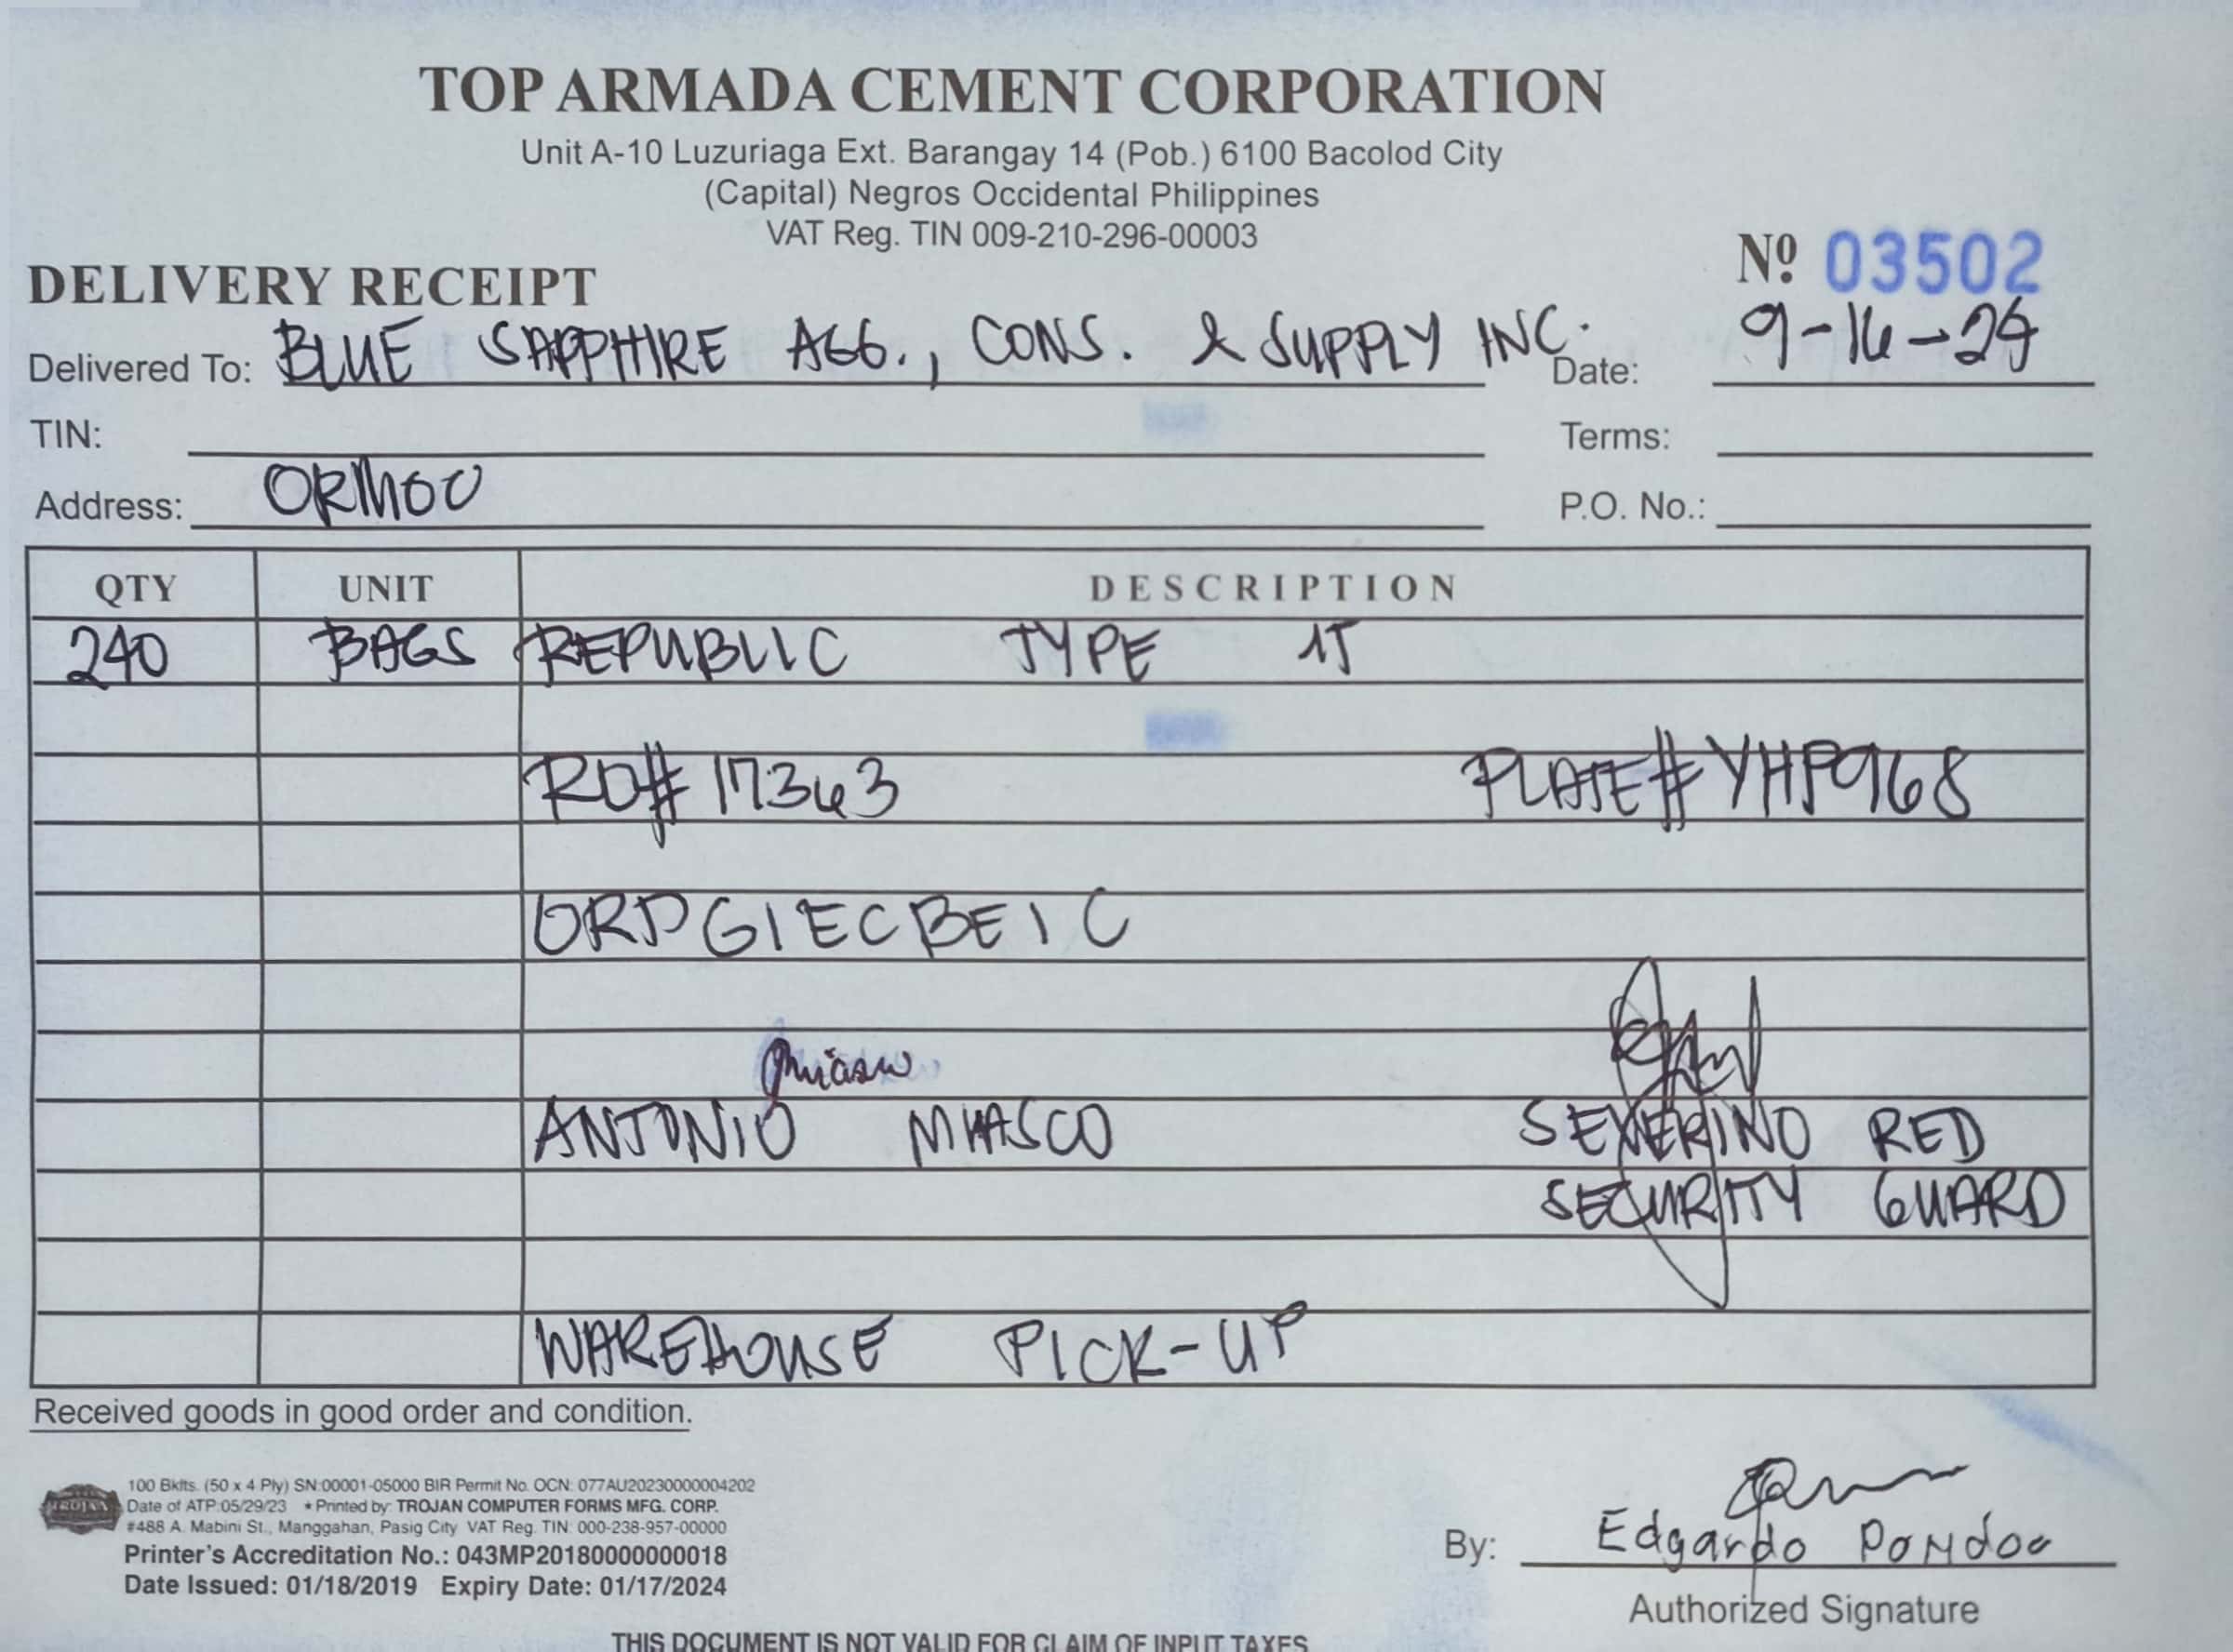 TOP ARMADA CEMENT CORPORATION
Unit A-10 Luzuriaga Ext. Barangay 14 (Pob.) 6100 Bacolod City
(Capital) Negros Occidental Philippines
VAT Reg. TIN 009-210-296-00003
DELIVERY RECEIPT
Nº 03502
Delivered To: BLUE SAPPHIRE AGG., CONS. & SUPPLY INC. Date: 9-16-24
TIN: Terms:
Address: ORMOC P.O. No.:
QTY UNIT DESCRIPTION
240 BAGS REPUBLIC TYPE 1T
RO# 17363 PLATE# YHP968
ORPGIECBEIC
ANTONIO MIASCO SEVERINO RED
SECURITY GUARD
WAREHOUSE PICK-UP
Received goods in good order and condition.
TROJAN
100 Bklts. (50 x 4 Ply) SN:00001-05000 BIR Permit No. OCN: 077AU20230000004202
Date of ATP:05/29/23 * Printed by: TROJAN COMPUTER FORMS MFG. CORP.
#488 A. Mabini St., Manggahan, Pasig City VAT Reg. TIN: 000-238-957-00000
Printer's Accreditation No.: 043MP20180000000018
Date Issued: 01/18/2019 Expiry Date: 01/17/2024
By: Edgardo Pondoc
Authorized Signature
THIS DOCUMENT IS NOT VALID FOR CLAIM OF INPUT TAXES